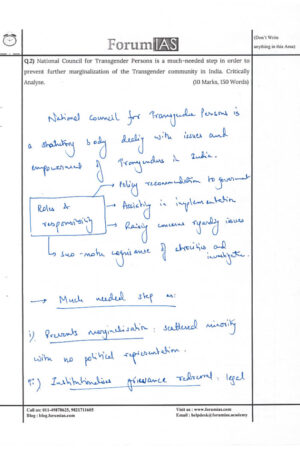 Forum IAS
(Don't Write
anything in this Area)
Q.2) National Council for Transgender Persons is a much-needed step in order to
prevent further marginalization of the Transgender community in India. Critically
Analyze. (10 Marks, 150 Words)
National Council for Transgender Persons is
a statutory body dealing with issues and
empowerment of Transgenders in India.
→ Policy recommendation to government
Roles & → Assisting in implementation
responsibility → Raising concerns regarding issues
↳ suo-motu cognisance of atrocities and
investigation.
→ Much needed step as:
i) Prevents marginalisation: scattered minority
with no political representation.
ii) Institutionalises grievance redressal, legal
Call us: 011-49878625, 9821711605
Blog : blog.forumias.com
Visit us : www.forumias.com
Email : helpdesk@forumias.academy